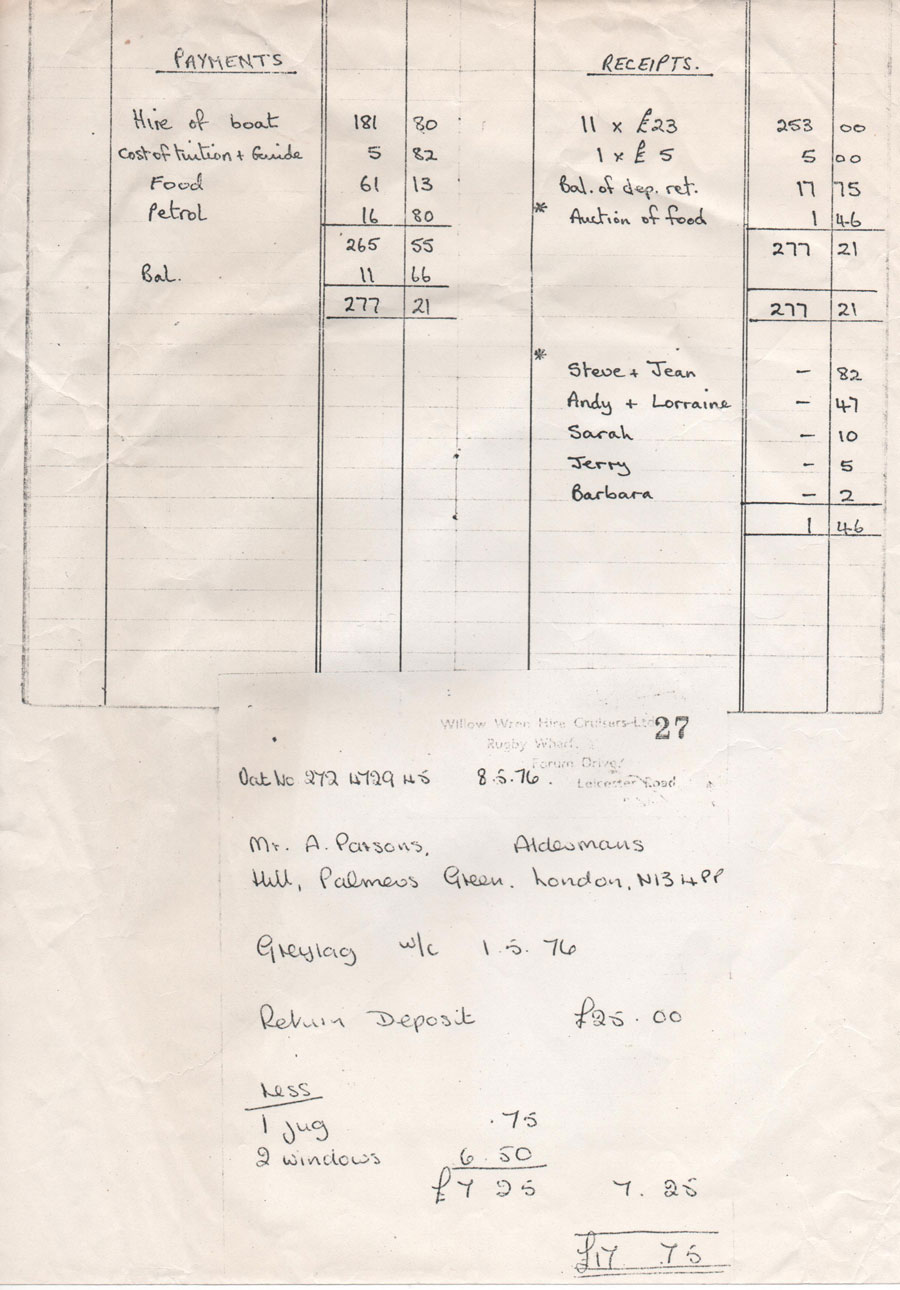 PAYMENTS
Hire of boat 181 80
Cost of tuition + Guide 5 82
Food 61 13
Petrol 16 80
265 55
Bal. 11 66
277 21
RECEIPTS.
11 x £23 253 00
1 x £ 5 5 00
Bal. of dep. ret. 17 75
* Auction of food 1 46
277 21
277 21
*
Steve + Jean - 82
Andy + Lorraine - 47
Sarah - 10
Jerry - 5
Barbara - 2
1 46
Willow Wren Hire Cruisers Ltd 27
Rugby Wharf,
Forum Drive,
Leicester Road
Vat No 272 4729 45 8.5.76.
Mr. A. Parsons, Aldermans
Hill, Palmers Green. London, N13 4PP
Greylag w/c 1.5.76
Return Deposit £25.00
Less
1 jug .75
2 windows 6.50
£7 25 7.25
£17 75